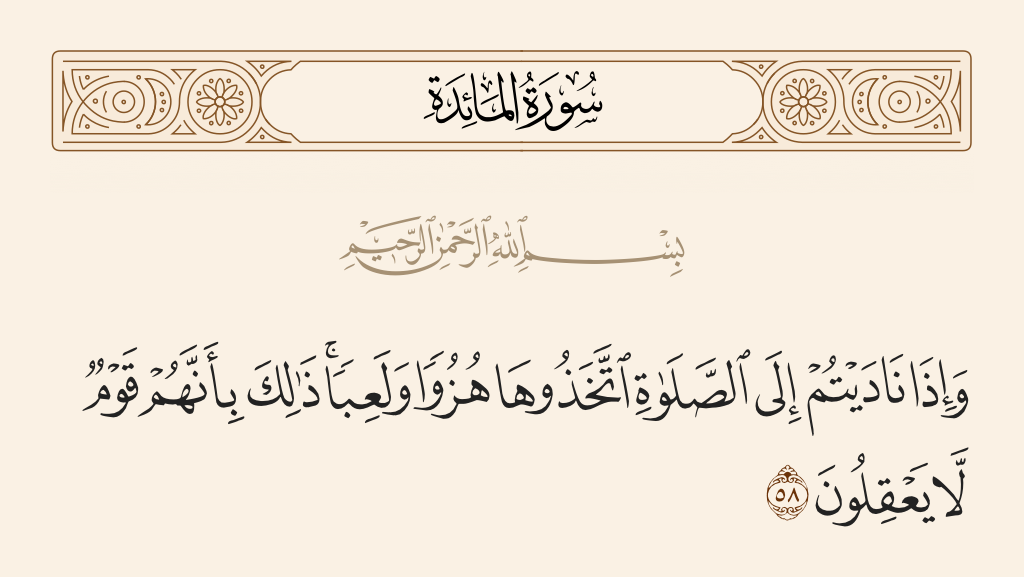 سُورَةُ المَائِدَةِ
بِسْمِ ٱللَّهِ ٱلرَّحْمَٰنِ ٱلرَّحِيمِ
وَإِذَا نَادَيْتُمْ إِلَى ٱلصَّلَوٰةِ ٱتَّخَذُوهَا هُزُوًا وَلَعِبًا ۚ ذَٰلِكَ بِأَنَّهُمْ قَوْمٌ
لَّا يَعْقِلُونَ ٥٨